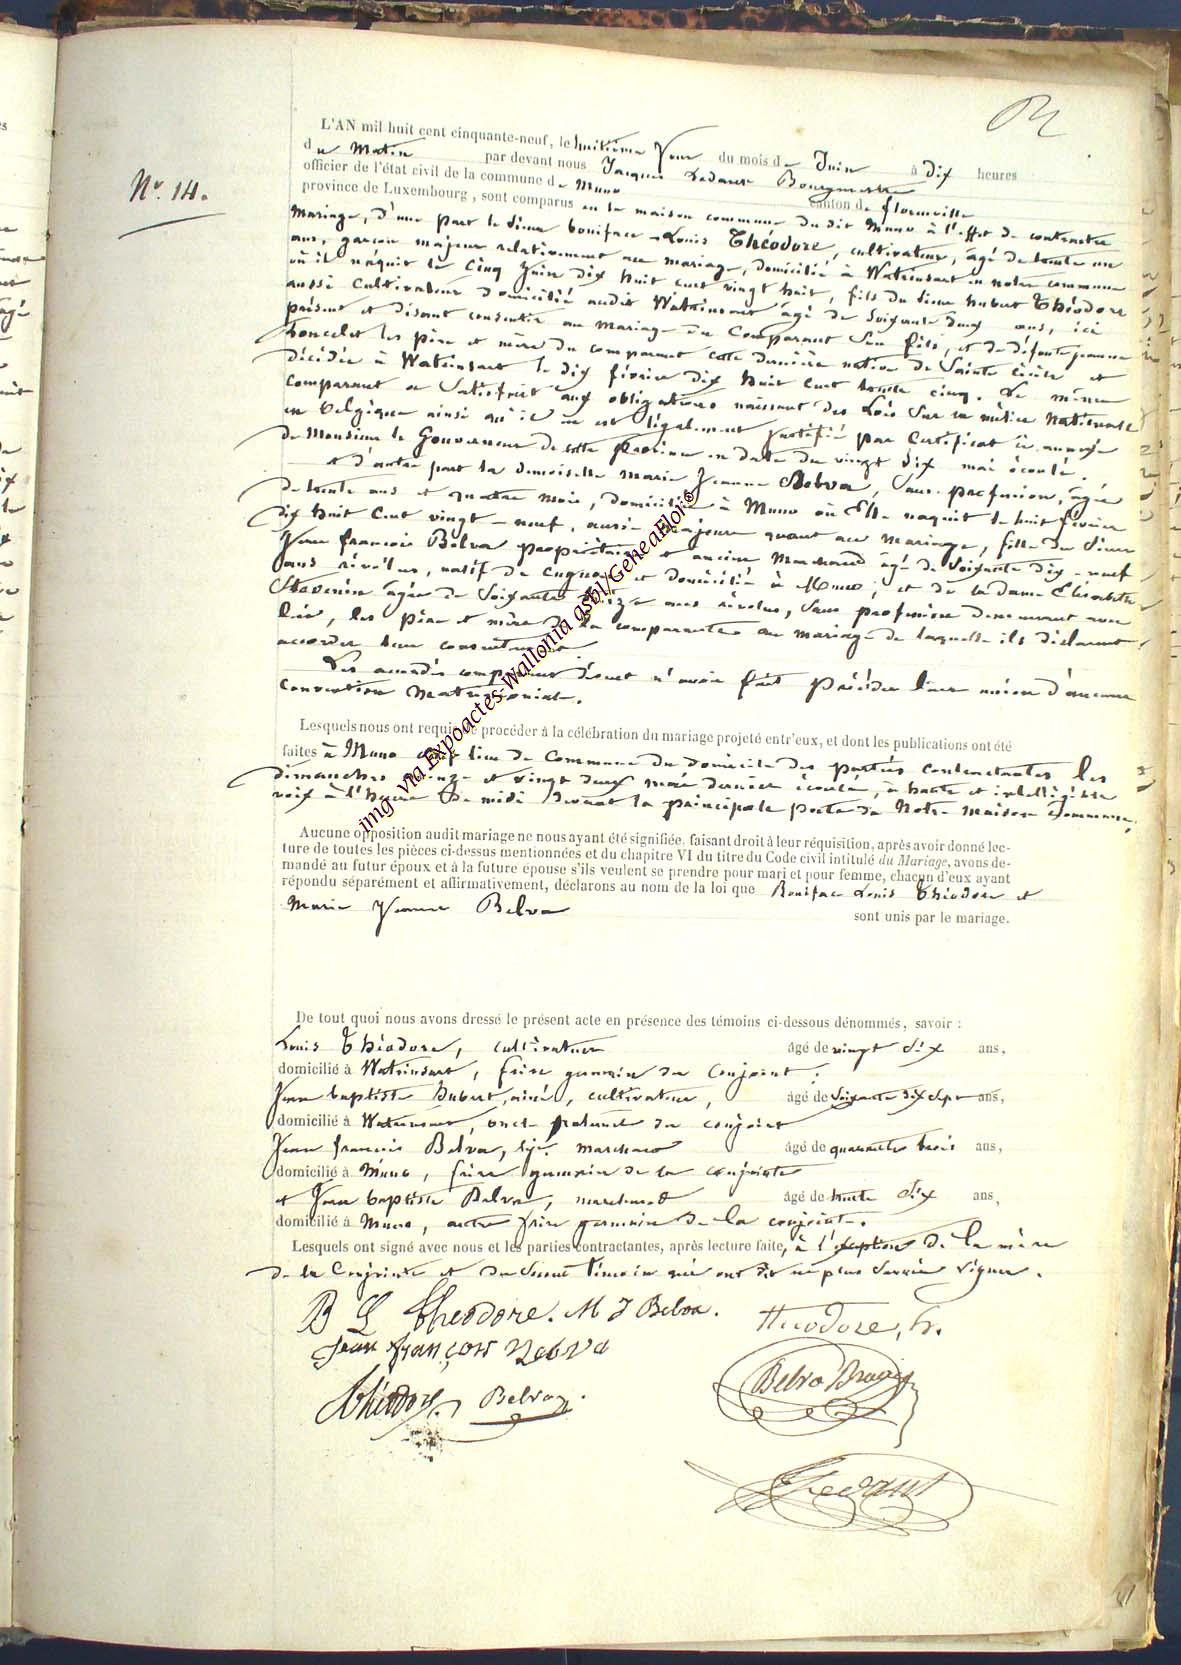 N° 14.
L'AN mil huit cent cinquante-neuf, le huitième Jour du mois de Juin à dix heures
du Matin par devant nous Jacques Ledant Bourgmestre
officier de l'état civil de la commune de Muno canton de florenville
province de Luxembourg, sont comparus en la maison commune du dit Muno à l'effet de contracter
Mariage, d'une part le Sieur boniface-Louis Théodore, cultivateur, âgé de trente un
ans, garçon majeur relativement au mariage, domicilié à Watrinsart en notre commune
où il náquit le Cinq Juin dix huit cent vingt huit, fils du Sieur hubert Théodore
aussi Cultivateur domicilié audit Watrinsart âgé de Soixante deux ans, ici
présent et disant consentir au mariage du Comparant Son fils, et de défunte jeanne
Poncelet les père et mère du comparant cette dernière native de Sainte Cécile et
décédée à Watrinsart le dix février dix huit cent trente cinq. Le même
Comparant a Satisfait aux obligations naissant des Lois Sur la milice Nationale
en Belgique ainsi qu'il en est légalement justifié par Certificat ci annexé
de Monsieur le Gouverneur de cette province en date du vingt dix mai écoulé.
et d'autre part la demoiselle Marie Jeanne Belva, Sans profession, âgée
de trente ans et quatre mois, domiciliée à Muno où Elle naquit le huit février
dix huit Cent vingt-neuf, aussi majeure quant au Mariage, fille du Sieur
Jean françois Belva propriétaire et ancien Marchand âgé de Soixante dix-neuf
ans révolus, natif de Cugnon et domicilié à Muno; et de la dame Elisabeth
âgée de Soixante ans révolus, Sans profession demeurant avec
lui, les père et mère de la comparante au mariage de laquelle ils déclarent
accorder leur consentement.
Les accordés comparant disent n'avoir fait précéder leur union d'aucune
Convention Matrimoniale.
Lesquels nous ont requis de procéder à la célébration du mariage projeté entr'eux, et dont les publications ont été
faites à Muno chef lieu de Commune du domicile des parties contractantes les
dimanches quinze et vingt deux mai dernier écoulé, à haute et intelligible
voix à l'heure de midi devant la principale porte de Notre Maison Commune,
Aucune opposition audit mariage ne nous ayant été signifiée, faisant droit à leur réquisition, après avoir donné lec-
ture de toutes les pièces ci-dessus mentionnées et du chapitre VI du titre du Code civil intitulé du Mariage, avons de-
mandé au futur époux et à la future épouse s'ils veulent se prendre pour mari et pour femme, chacun d'eux ayant
répondu séparément et affirmativement, déclarons au nom de la loi que Boniface Louis Théodore et
Marie Jeanne Belva sont unis par le mariage.
De tout quoi nous avons dressé le présent acte en présence des témoins ci-dessous dénommés, savoir :
Louis Théodore, cultivateur âgé de vingt dix ans,
domicilié à Watrinsart, frère germain du Conjoint;
Jean baptiste Hubert, ainé, cultivateur, âgé de Soixante dix Sept ans,
domicilié à Watrinsart, oncle paternel du conjoint
Jean françois Belva, marchand âgé de quarante trois ans,
domicilié à Muno, frère germain de la conjointe
et Jean baptiste Belva, marchand âgé de trente dix ans,
domicilié à Muno, autre frère germain de la conjointe.
Lesquels ont signé avec nous et les parties contractantes, après lecture faite, à l'exception de la mère
de la Conjointe et du Second témoin qui ont dit ne plus Savoir Signer.
B L Théodore. M J Belva. Théodore, h.
Jean françois Belva
Belva
Théodore Belva.
Ledant
img via Expoactes-Wallonia asbl/GeneaEloi©